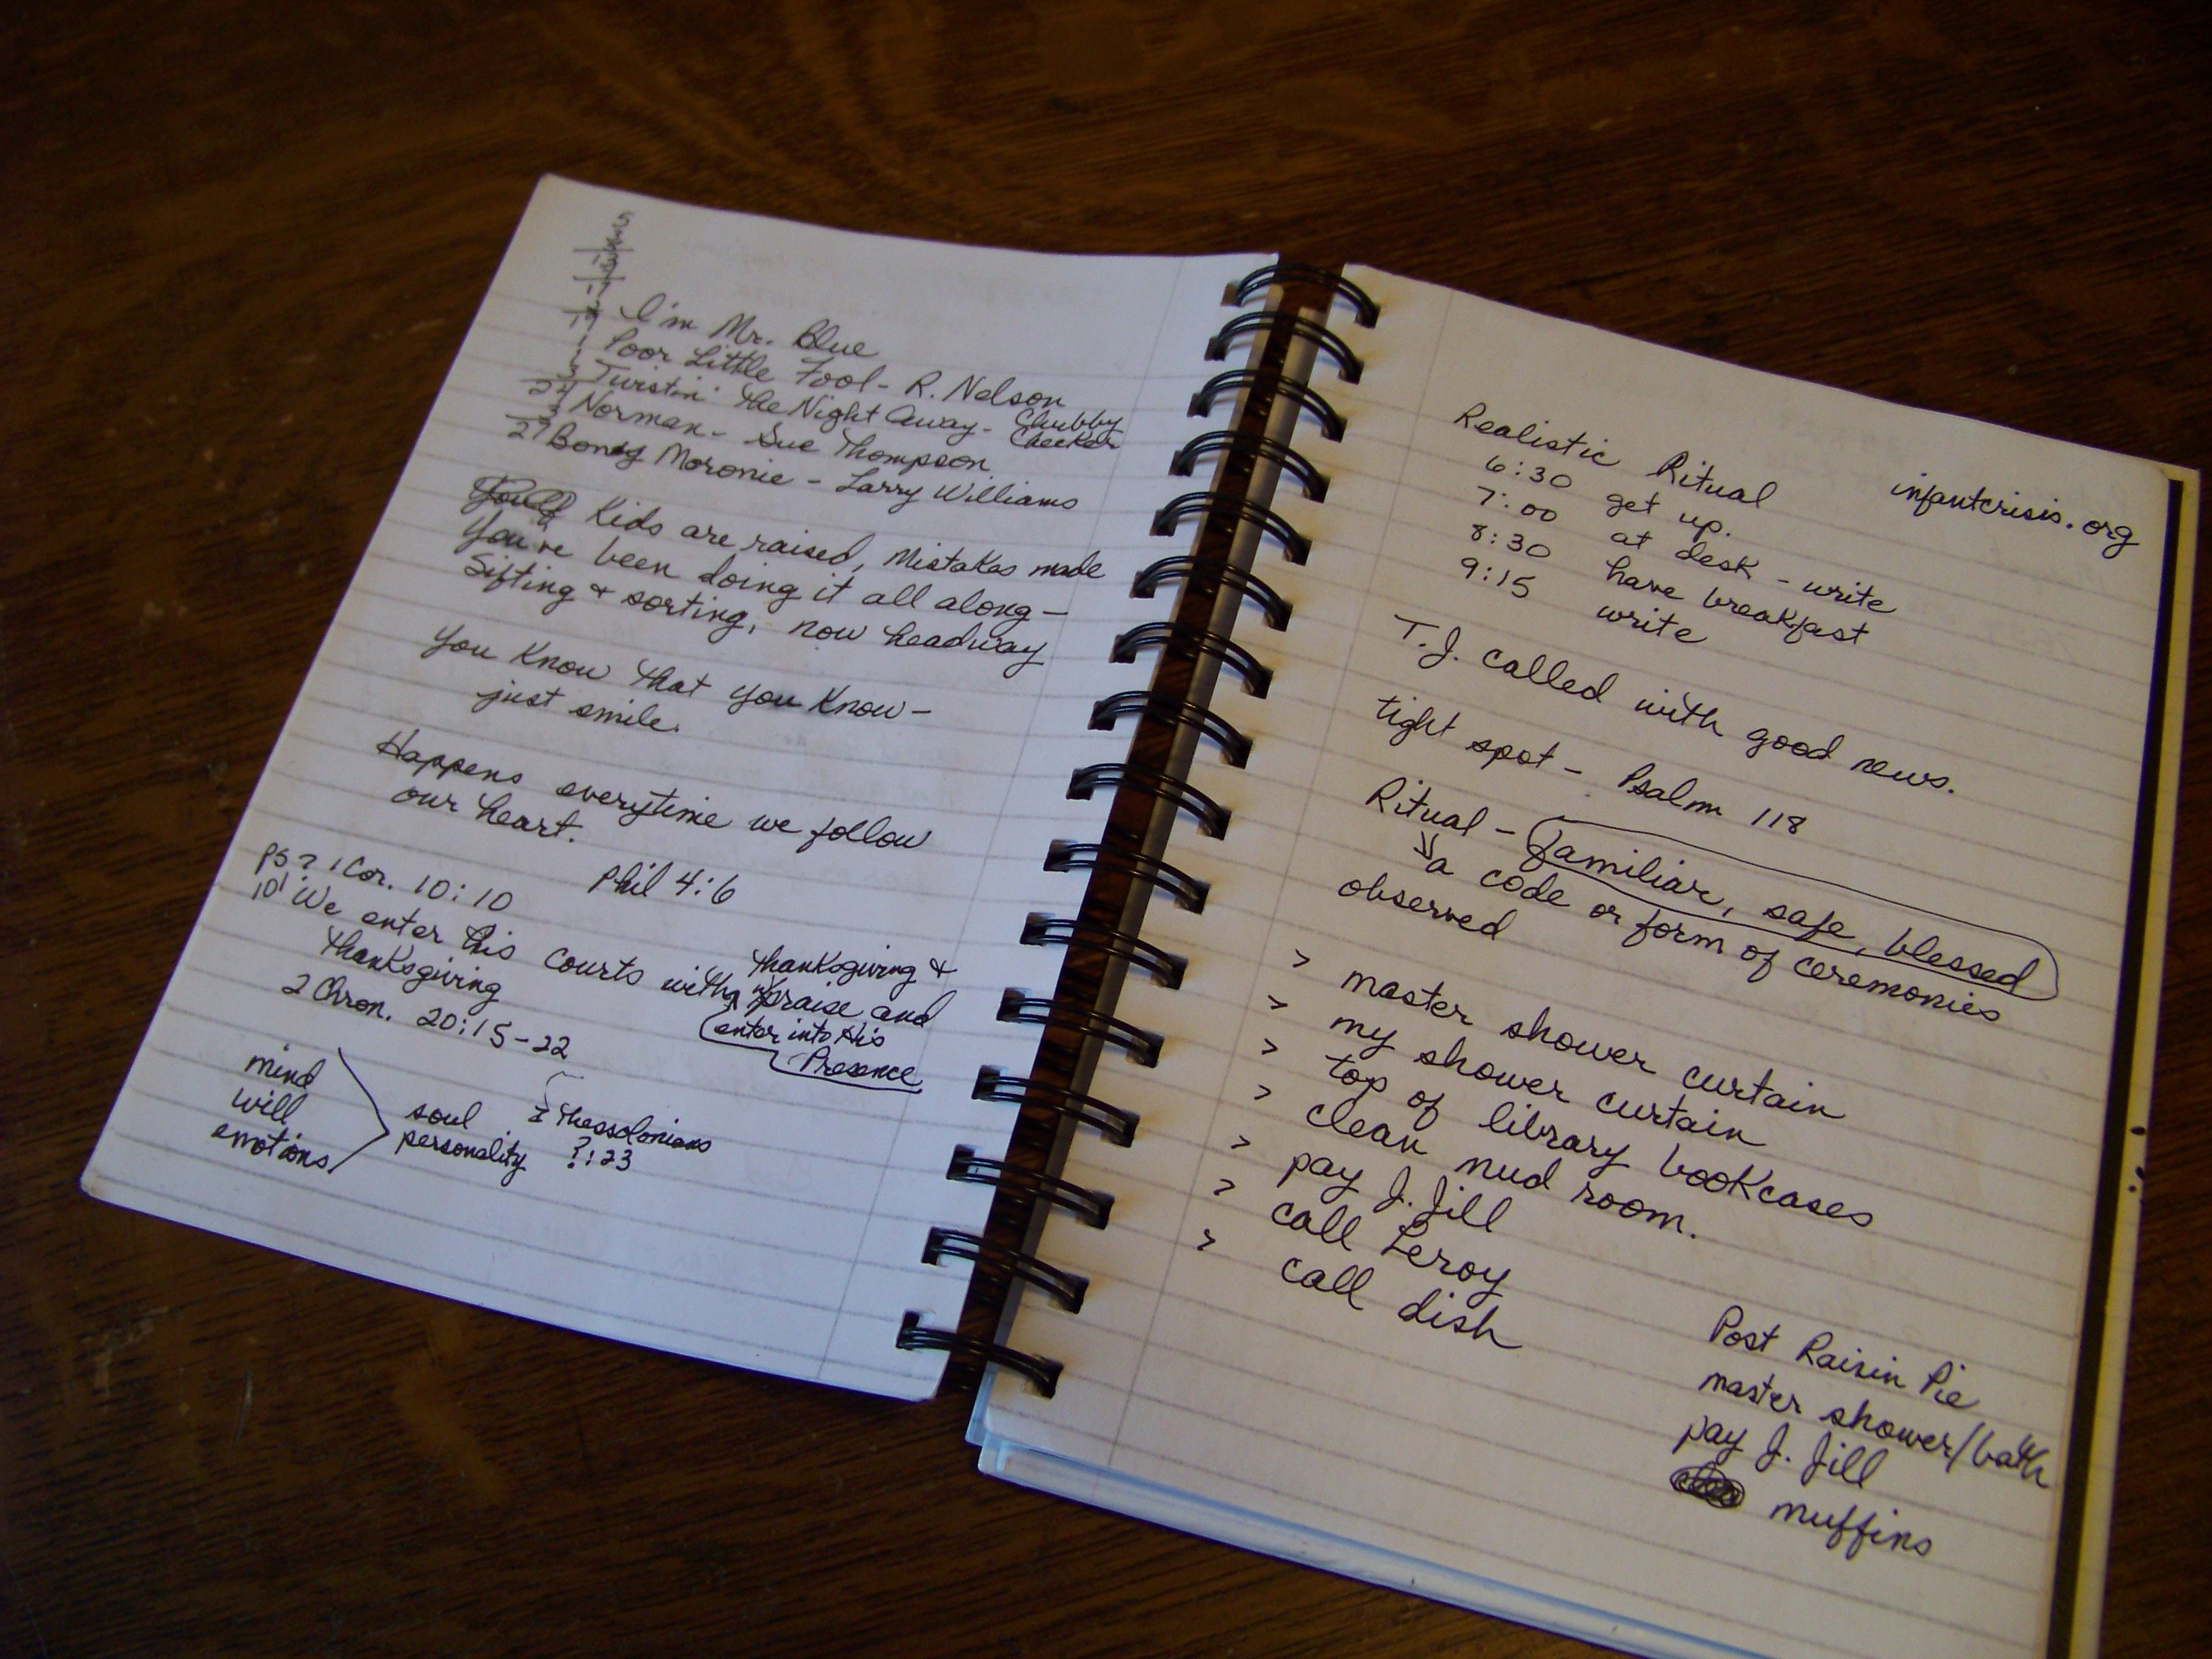 5
I'm Mr. Blue
Poor Little Fool - R. Nelson
Twistin' the Night Away - Chubby Checker
Norman - Sue Thompson
27 Boney Moronie - Larry Williams
Kids are raised, Mistakes made
You've been doing it all along -
Sifting & sorting, now headway
You know that you know -
just smile.
Happens everytime we follow
our heart.
PS? 1 Cor. 10:10 Phil 4:6
101 We enter this courts with thanksgiving &
thanksgiving praise and
enter into His
Presence
2 Chron. 20:15-22
mind
will
emotions
soul
personality
Thessolonians
?:23
Realistic Ritual infantcrisis.org
6:30 get up.
7:00 at desk - write
8:30 have breakfast
9:15 write
T.J. called with good news.
tight spot - Psalm 118
Ritual - familiar, safe, blessed
a code or form of ceremonies
observed
> master shower curtain
> my shower curtain
> top of library bookcases
> clean mud room.
> pay J. Jill
> call Leroy
> call dish
Post Raisin Pie
master shower/bath
pay J. Jill
muffins